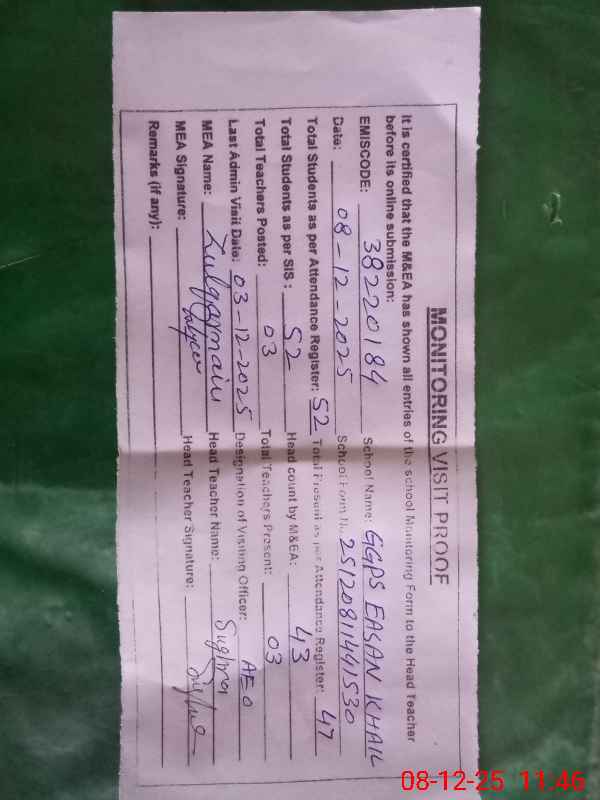 MONITORING VISIT PROOF
It is certified that the M&EA has shown all entries of the school Monitoring Form to the Head Teacher
before its online submission:
EMISCODE: 38220184 School Name: GGPS EASAN KHAIL
Date: 08-12-2025 School Form No. 25120811441530
Total Students as per Attendance Register: 52 Total Present as per Attendance Register: 47
Total Students as per SIS: 52 Head count by M&EA: 43
Total Teachers Posted: 03 Total Teachers Present: 03
Last Admin Visit Date: 03-12-2025 Designation of Visiting Officer: AEO
MEA Name: Zulqarnain Head Teacher Name:
MEA Signature: Head Teacher Signature:
Remarks (if any):
08-12-25 11:46